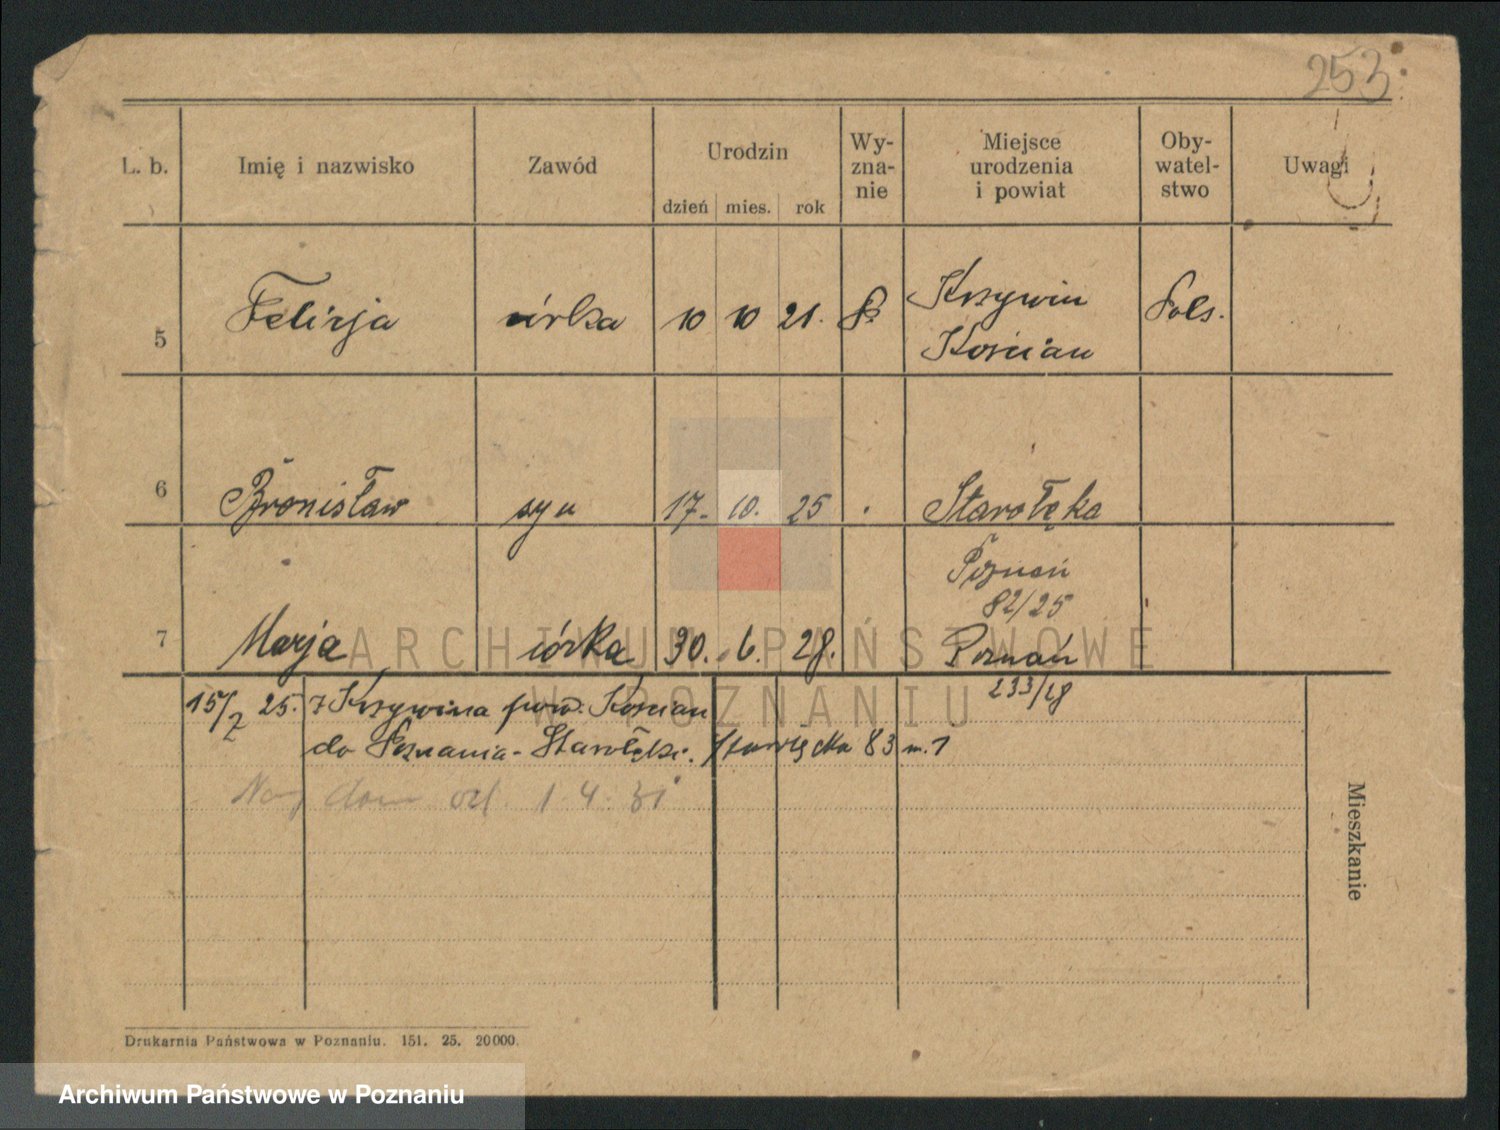 253
L. b.
Imię i nazwisko
Zawód
Urodzin
dzień mies. rok
Wy-
zna-
nie
Miejsce
urodzenia
i powiat
Oby-
watel-
stwo
Uwagi
5 Felicja córka 10 10 21. Krzywin Pols.
Kościan
6 Bronisław syn 17. 10. 25 Starołęka
Poznań
82/25
7 Marja córka 30. 6. 28. Poznań
233/28
15/7 25. z Krzywina pow. Kościan
do Poznania-Starołęki. Starołęcka 83 m. 1
dom od 1.4.31
Mieszkanie
Drukarnia Państwowa w Poznaniu. 151. 25. 20000.
ARCHIWUM PAŃSTWOWE
W POZNANIU
Archiwum Państwowe w Poznaniu